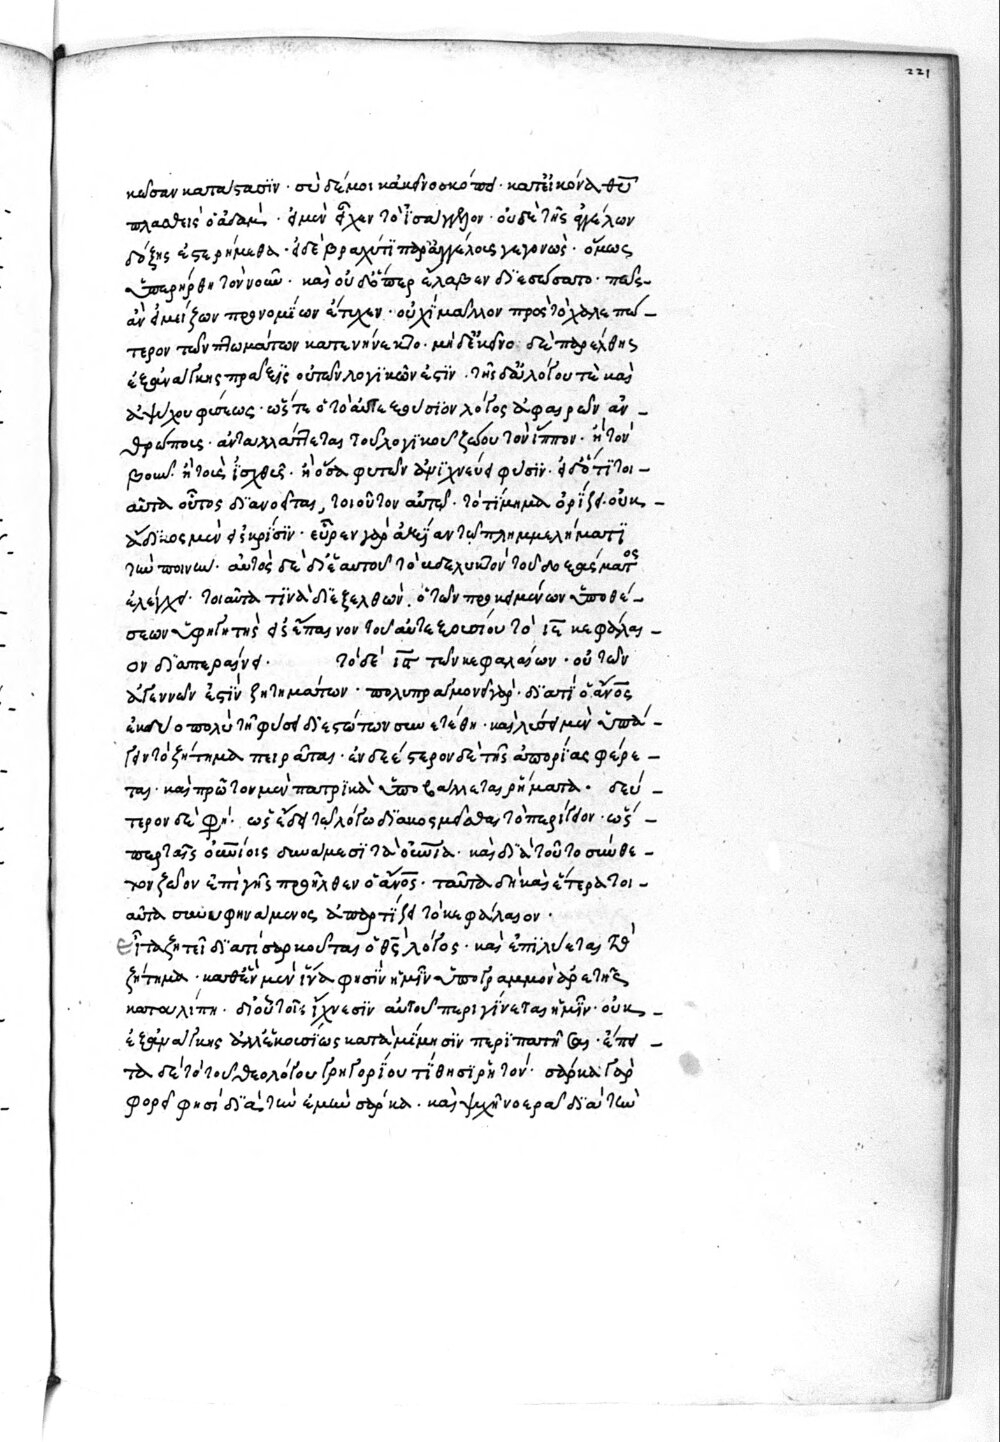 221
κωσαν κατάστασϊν · σὺ δέ μοι κἀκεῖνο σκόπει · κατ' εἰκόνα θῦ
πλασθεὶς ὁ ἀδαμ · εἰ μὲν εἶχεν τὸ ἰσάγγελον · οὐδὲ τῆς ἀγγέλων
δόξης ἐστερήμεθα · εἰ δὲ βραχύ τι παρ' ἀγγέλοις γεγονὼς · ὅμως
ὑπερήρθη τὸν νοῦν · καὶ οὐδ' ὅπερ ἔλαβεν διεσώσατο · πῶς
ἂν εἰ μείζων προνομίων ἔτυχεν · οὐχὶ μᾶλλον πρὸς τὸ χαλεπώ –
τερον τῶν πτωμάτων κατενήνεκτο · μηδ' ἐκεῖνο δὲ παρέλθης
ἐξ ἀνάγκης πράξεις οὐ τῶν λογικῶν ἐστὶν · τῆς δ' ἀλόγου τὲ καὶ
ἀψύχου φύσεως · ὥστε ὁ τὸ αὐτεξουσιον λόγος ἀφαιρῶν ἀν –
θρώποις · ἀνταλλάττεται τοῦ λογικοῦ ζώου τὸν ἵππον · ἢ τὸν
βοῦν · ἢ τοὺς ἰσχθῦς · ἢ ὅσα φυτῶν ἀνιχνεύει φύσιν · εἰ δ' ὅτι τοι –
αῦτα οὗτος διανοεῖται, τοιοῦτον αὐτῶ · τὸ τίμημα ὁρίζει · οὐκ –
ἄδικος μὲν εἰ κρίσϊν · εὗρεν γὰρ οἰκείαν τῶ πλημμελήματϊ
τὴν ποινὴν · αὐτὸς δὲ δι' ἑαυτοῦ τὸ βδελυκτὸν τοῦ δοξάσματος
ἐλέγχει · τοιαῦτα τινὰ διεξελθὼν · ὁ τῶν προκειμένων ὑποθέ –
σεων ὑφηγητὴς εἰς ἔπαινον τοῦ αὐτεξουσίου τὸ ιε κεφάλαι –
ον διαπεραίνει · τὸ δὲ ις τῶν κεφαλαίων · οὐ τῶν
ἀγεννῶν ἐστὶν ζητημάτων · πολυπραγμονεῖ γὰρ · διατί ὁ ἄνος
ἐκ δύο πολὺ τῆ φύσει διεστώτων συνετέθη · καὶ λύσει μὲν ὑπά –
γειν τὸ ζήτημα πειρᾶται · ἐνδεέστερον δὲ τῆς ἀπορίας φέρε –
ται · καὶ πρῶτον μὲν πατρικὰ ὑποβάλλεται ῥήματα · δεύ –
τερον δὲ φη · ὡς ἔδει τῶ λόγω διακοσμεῖσθαι τὸ περίγειον · ὥς –
περ ταῖς οὐνίοις δυνάμεσι τὰ οὐνια · καὶ διὰ τοῦτο σύνθε –
τον ζῶον ἐπὶ γῆς προῆλθεν ὁ ἄνος · ταῦτα δὴ καὶ ἕτερα τοι –
αῦτα συνυφηνάμενος ἀπαρτίζει τὸ κεφάλαιον ·
Εἶτα ζητεῖ διατί σαρκοῦται ὁ θς λόγος · καὶ ἐπιλύεται τὸ
ζήτημα · καθ' ἓν μὲν ἵνα φησὶν ἡμῖν ὑπογραμμὸν ἀρετῆς
καταλίπη · δι' οὗ τοῖς ἴχνεσιν αὐτοῦ περιγίνεται ἡμῖν · οὐκ –
ἐξ ἀνάγκης ἀλλ' ἑκουσίως κατὰ μίμησιν περιπατῆσαι · ἔπει –
τα δὲ τὸ τοῦ θεολόγου γρηγορίου τίθησι ῥητόν · σάρκα γὰρ
φορεῖ φησὶ διὰ τὴν ἐμὴν σάρκα · καὶ ψυχῆ νοερᾶ διὰ τὴν